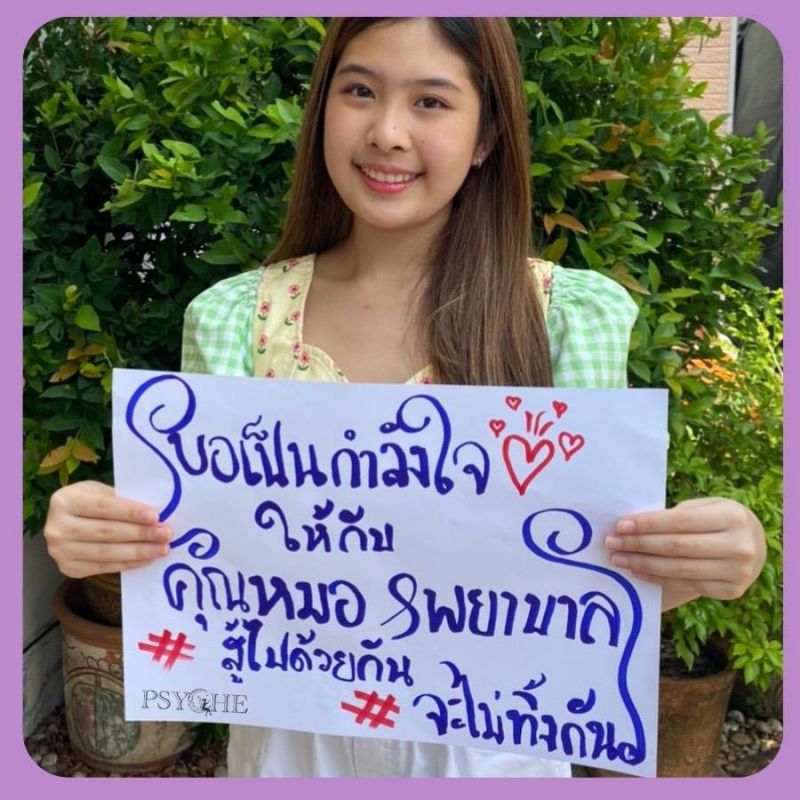 ขอเป็นกำลังใจ
ให้กับ
คุณหมอ & พยาบาล
#สู้ไปด้วยกัน
#จะไม่ทิ้งกัน
PSYCHE